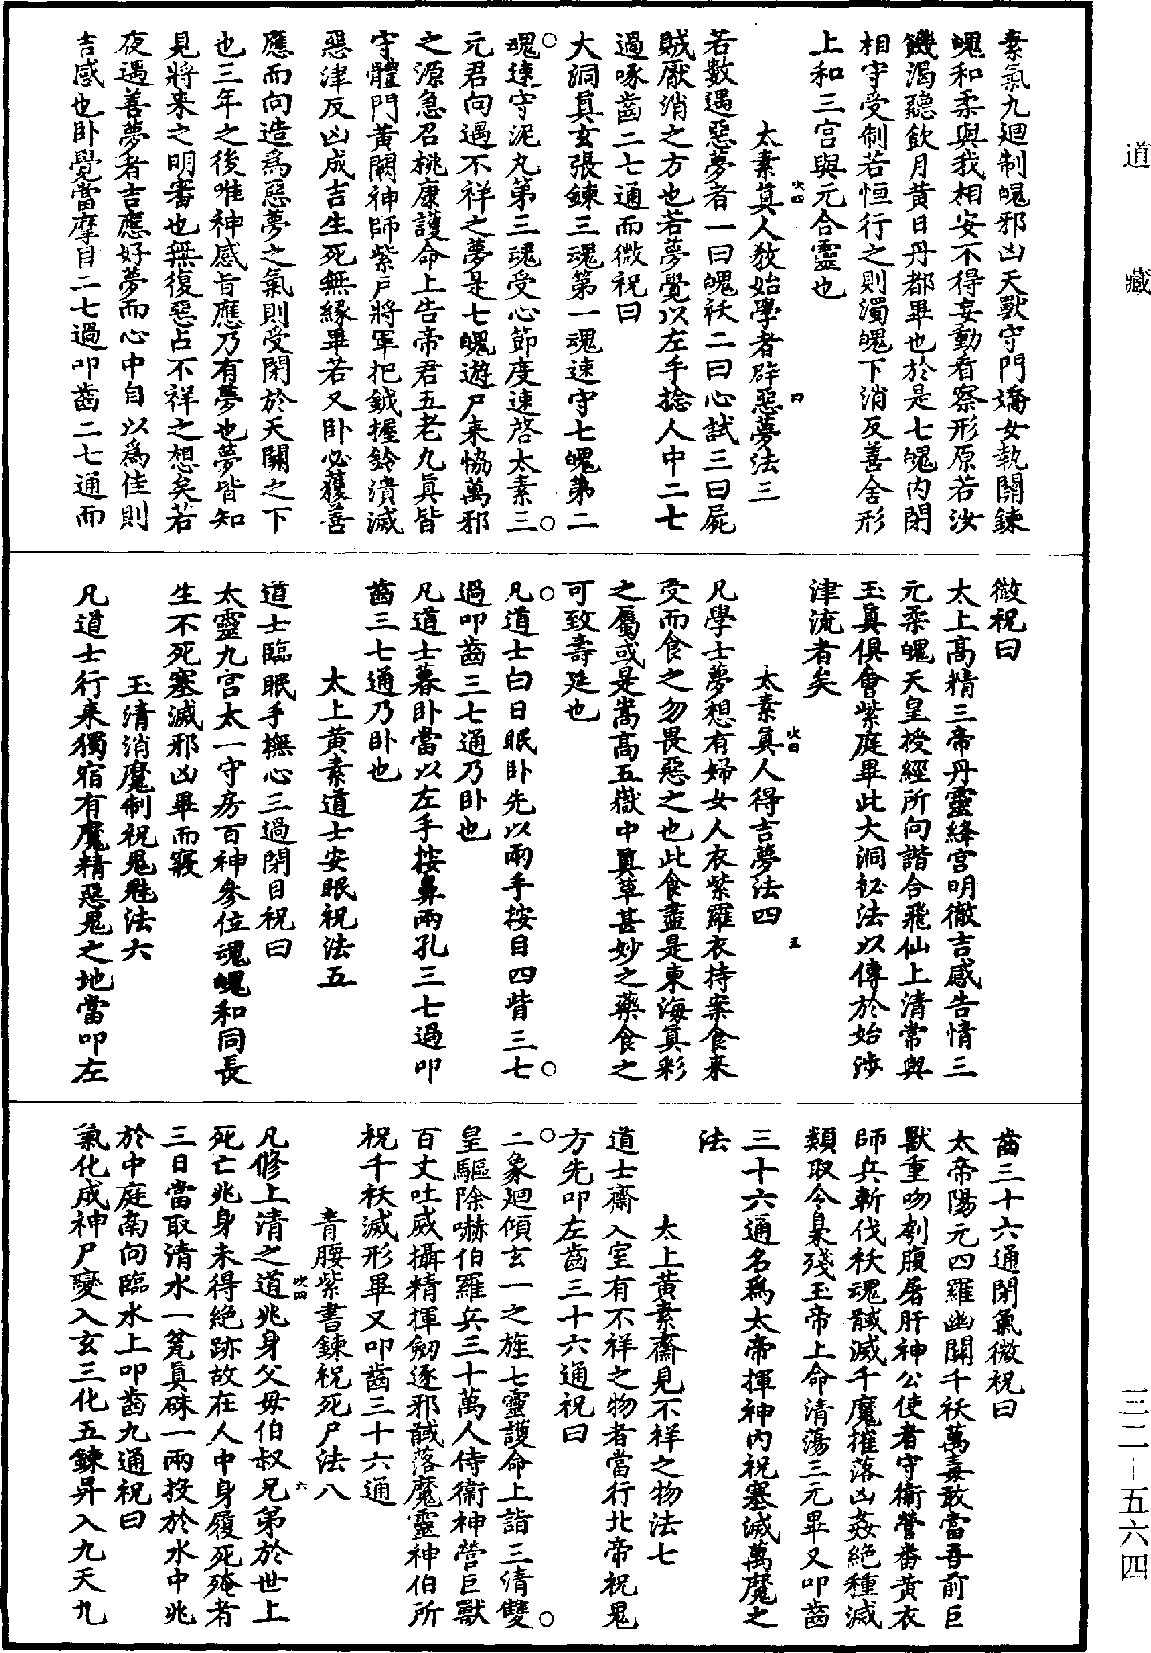 素氣九迴制魄邪凶天獸守門嬌女執關鍊
魄和柔與我相安不得妄動看察形原若汝
飢渴聽飲月黃日丹都畢也於是七魄內閉
相守受制若恒行之則濁魄下消反善舍形
上和三宮與元合靈也
太素真人敎始學者辟惡夢法三
若數遇惡夢者一曰魄祅二曰心試三曰屍
賊厭消之方也若夢覺以左手捻人中二七
過啄齒二七通而微祝曰
大洞真玄張鍊三魂第一魂速守七魄第二
魂速守泥丸第三魂受心節度速啓太素三
元君向遇不祥之夢是七魄遊尸來恊萬邪
之源急召桃康護命上告帝君五老九真皆
守體門黃闕神師紫戶將軍把鉞握鈴潰滅
惡津反凶成吉生死無緣畢若又卧必獲善
應而向造爲惡夢之氣則受閉於天關之下
也三年之後唯神感旨應乃有夢也夢皆知
見將來之明審也無復惡占不祥之想矣若
夜遇善夢者吉應好夢而心中自以爲佳則
吉感也卧覺當摩目二七過叩齒二七通而
微祝曰
太上高精三帝丹靈絳宮明徹吉感告情三
元柔魄天皇授經所向諧合飛仙上清常與
玉真俱會紫庭畢此大洞祕法以傳於始涉
津流者矣
太素真人得吉夢法四
凡學士夢想有婦女人衣紫羅衣持案食來
受而食之勿畏惡之也此食盡是東海真彩
之屬或是嵩高五嶽中真草甚妙之藥食之
可致壽延也
凡道士白日眠卧先以兩手按目四眥三七
過叩齒三七通乃卧也
凡道士暮卧當以左手按鼻兩孔三七過叩
齒三七通乃卧也
太上黃素道士安眠祝法五
道士臨眠手撫心三過閉目祝曰
太靈九宮太一守房百神參位魂魄和同長
生不死塞滅邪凶畢而寢
玉清消魔制祝鬼魅法六
凡道士行來獨宿有魔精惡鬼之地當叩左
齒三十六通閉氣微祝曰
太帝陽元四羅幽關千祅萬毒敢當吾前巨
獸重吻刳腹屠肝神公使者守衞營番黃衣
師兵斬伐祅魂馘滅千魔摧落凶姦絕種滅
類取令梟殘玉帝上命清蕩三元畢又叩齒
三十六通名爲太帝揮神內祝塞滅萬魔之
法
太上黃素齋見不祥之物法七
道士齋入室有不祥之物者當行北帝祝鬼
方先叩左齒三十六通祝曰
二象廻傾玄一之旌七靈護命上詣三清雙
皇驅除嚇伯羅兵三十萬人侍衞神營巨獸
百丈吐威攝精揮劒逐邪馘落魔靈神伯所
祝千祅滅形畢又叩齒三十六通
青腰紫書鍊祝死尸法八
凡修上清之道兆身父母伯叔兄弟於世上
死亡兆身未得絕跡故在人中身履死殗者
三日當取清水一瓫真硃一兩投於水中兆
於中庭南向臨水上叩齒九通祝曰
氣化成神尸變入玄三化五鍊昇入九天九
道藏
三二－五六四